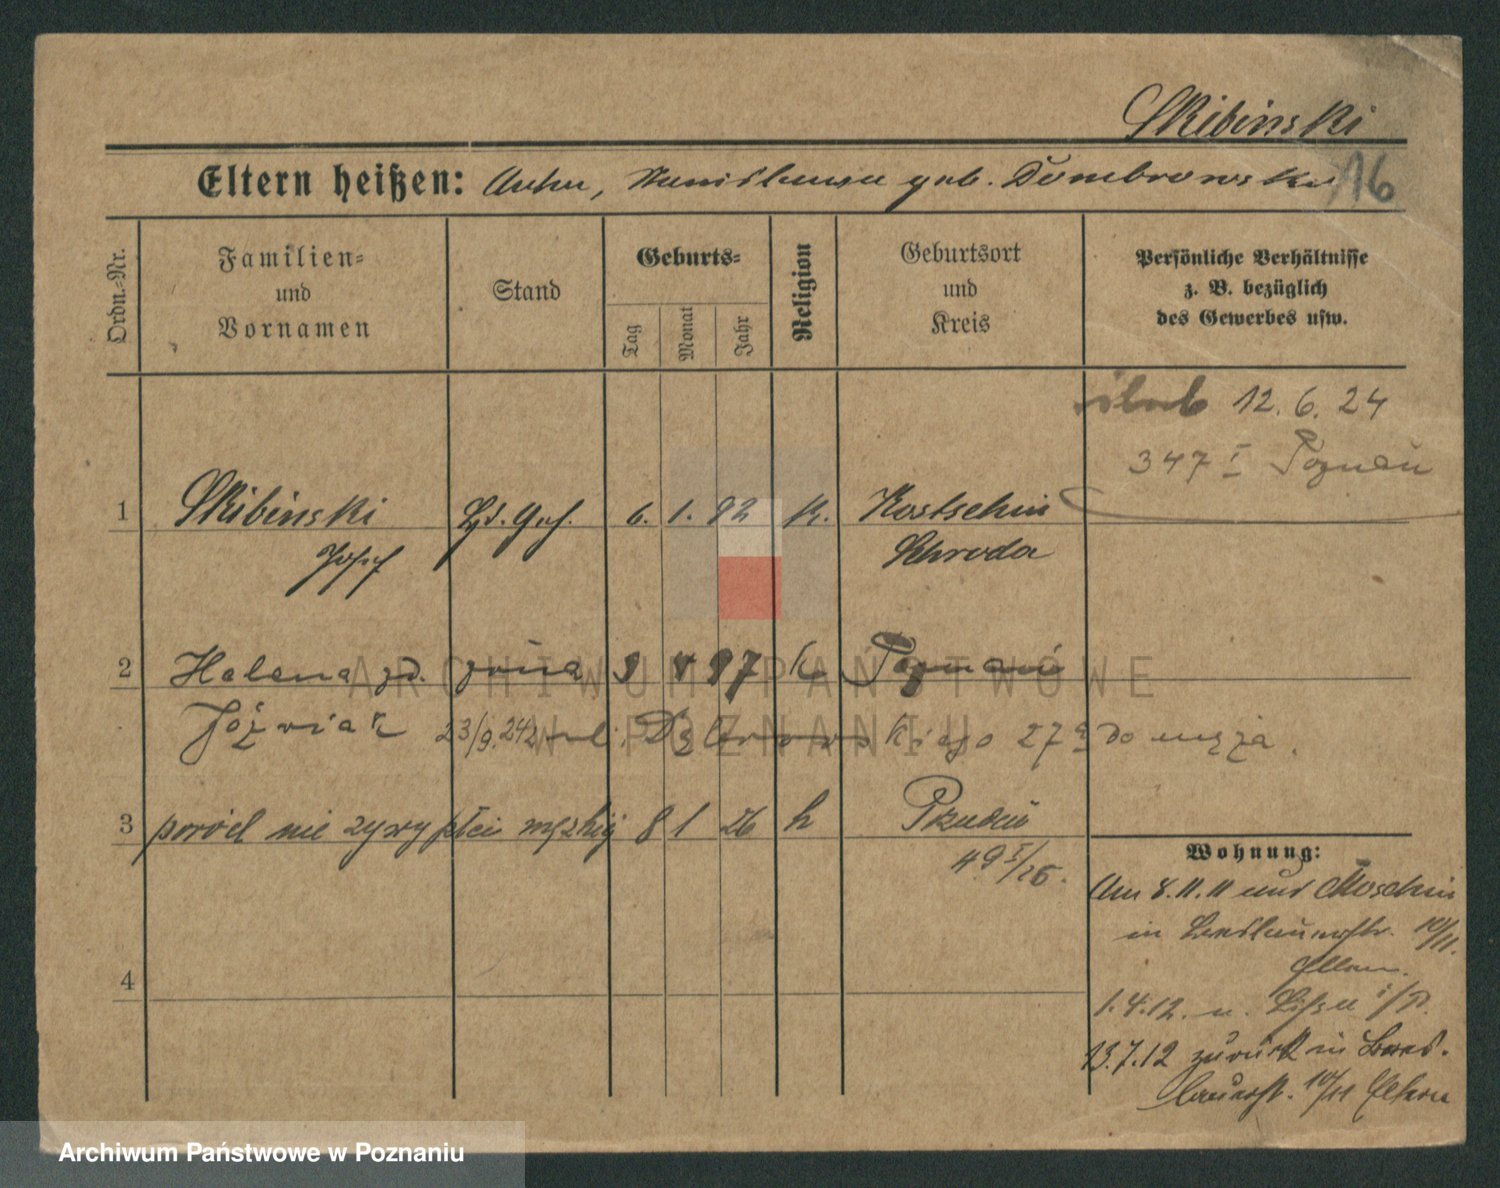 Skibinski
16
Eltern heißen: Anton, Stanislawa geb. Dombrowska
Ordn.-Nr.
Familien-
und
Vornamen
Stand
Geburts-
Tag
Monat
Jahr
Religion
Geburtsort
und
Kreis
Persönliche Verhältnisse
z. B. bezüglich
des Gewerbes usw.
ślub 12. 6. 24
347 I Poznań
1 Skibinski 6. 1. 92 k. Kostschin
Josef Schroda
2 Helena zd. żona 9 4 97 k Poznań
Jóźwiak 23/9. 24 ul. Dąbrowskiego 27 do męża.
3 poród nie żywy płci męzkiej 8 1 26 k Poznań
49 I/26.
Wohnung:
Am 8.11.11 aus Moschin
in 10/11.
Eltern.
1.4.12. n. Lissa i/P.
13.7.12 zurück in Bres-
lauerst. 10/11 Eltern
4
ARCHIWUM PAŃSTWOWE
W POZNANIU
Archiwum Państwowe w Poznaniu